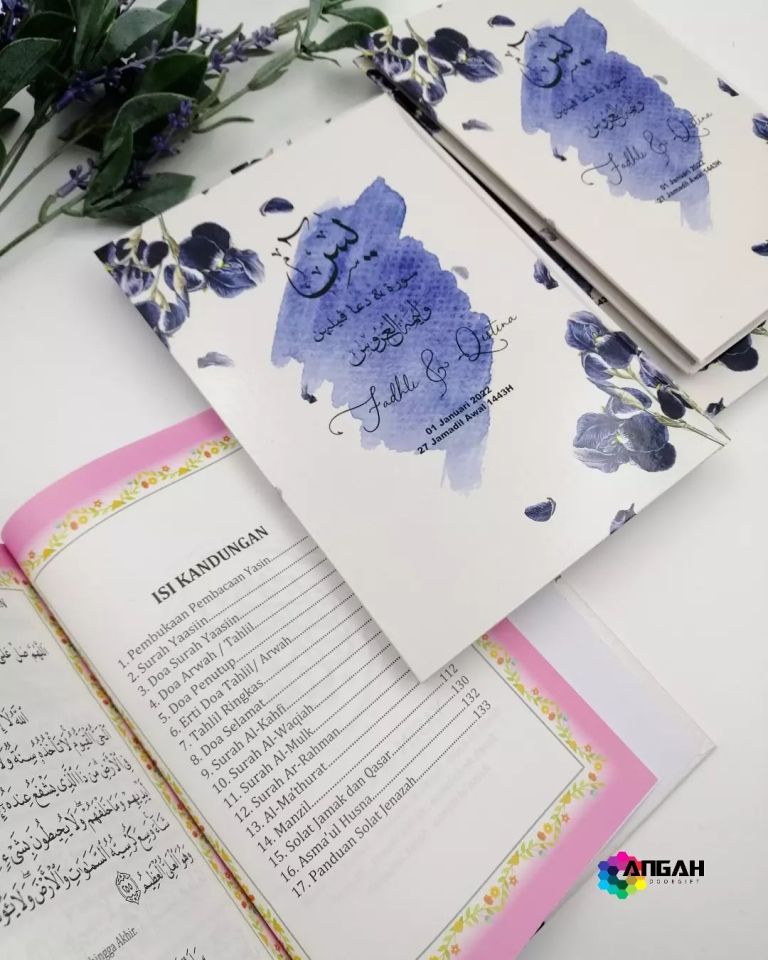 يس
سورة & دعا ڤيليهن
وليمة العروس
Fadhli & Qistina
01 Januari 2022
27 Jamadil Awal 1443H
يس
وليمة العروس
Fadhli & Qistina
01 Januari 2022
27 Jamadil Awal 1443H
ISI KANDUNGAN
1. Pembukaan Pembacaan Yasin
2. Surah Yaasiin
3. Doa Surah Yaasiin
4. Doa Arwah / Tahlil
5. Doa Penutup
6. Erti Doa Tahlil/ Arwah
7. Tahlil Ringkas
8. Doa Selamat
9. Surah Al-Kahfi
10. Surah Al-Waqiah
11. Surah Al-Mulk
12. Surah Ar-Rahman
13. Al-Ma'thurat 112
14. Manzil 130
15. Solat Jamak dan Qasar 132
16. Asma'ul Husna 133
17. Panduan Solat Jenazah
ٱلْحَىُّ ٱلْقَيُّومُ لَا تَأْخُذُهُۥ سِنَةٌ وَلَا
ٱلْأَرْضِ مَن ذَا ٱلَّذِى يَشْفَعُ عِندَهُۥٓ
أَيْدِيهِمْ وَمَا خَلْفَهُمْ وَلَا يُحِيطُونَ بِشَىْءٍ
شَآءَ وَسِعَ كُرْسِيُّهُ ٱلسَّمَٰوَٰتِ وَٱلْأَرْضَ وَلَا
وَهُوَ ٱلْعَلِىُّ ٱلْعَظِيمُ
hingga Akhir.
ANGAH
DOORGIFT